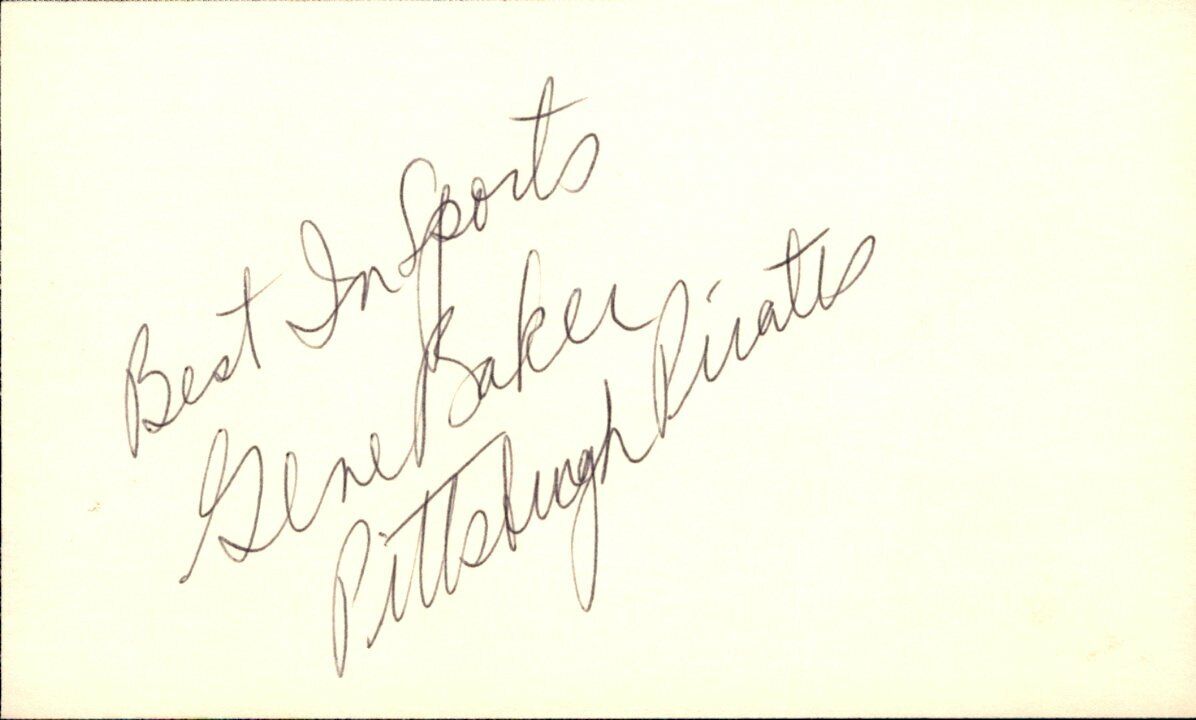 Best In Sports
Gene Baker
Pittsburgh Pirates